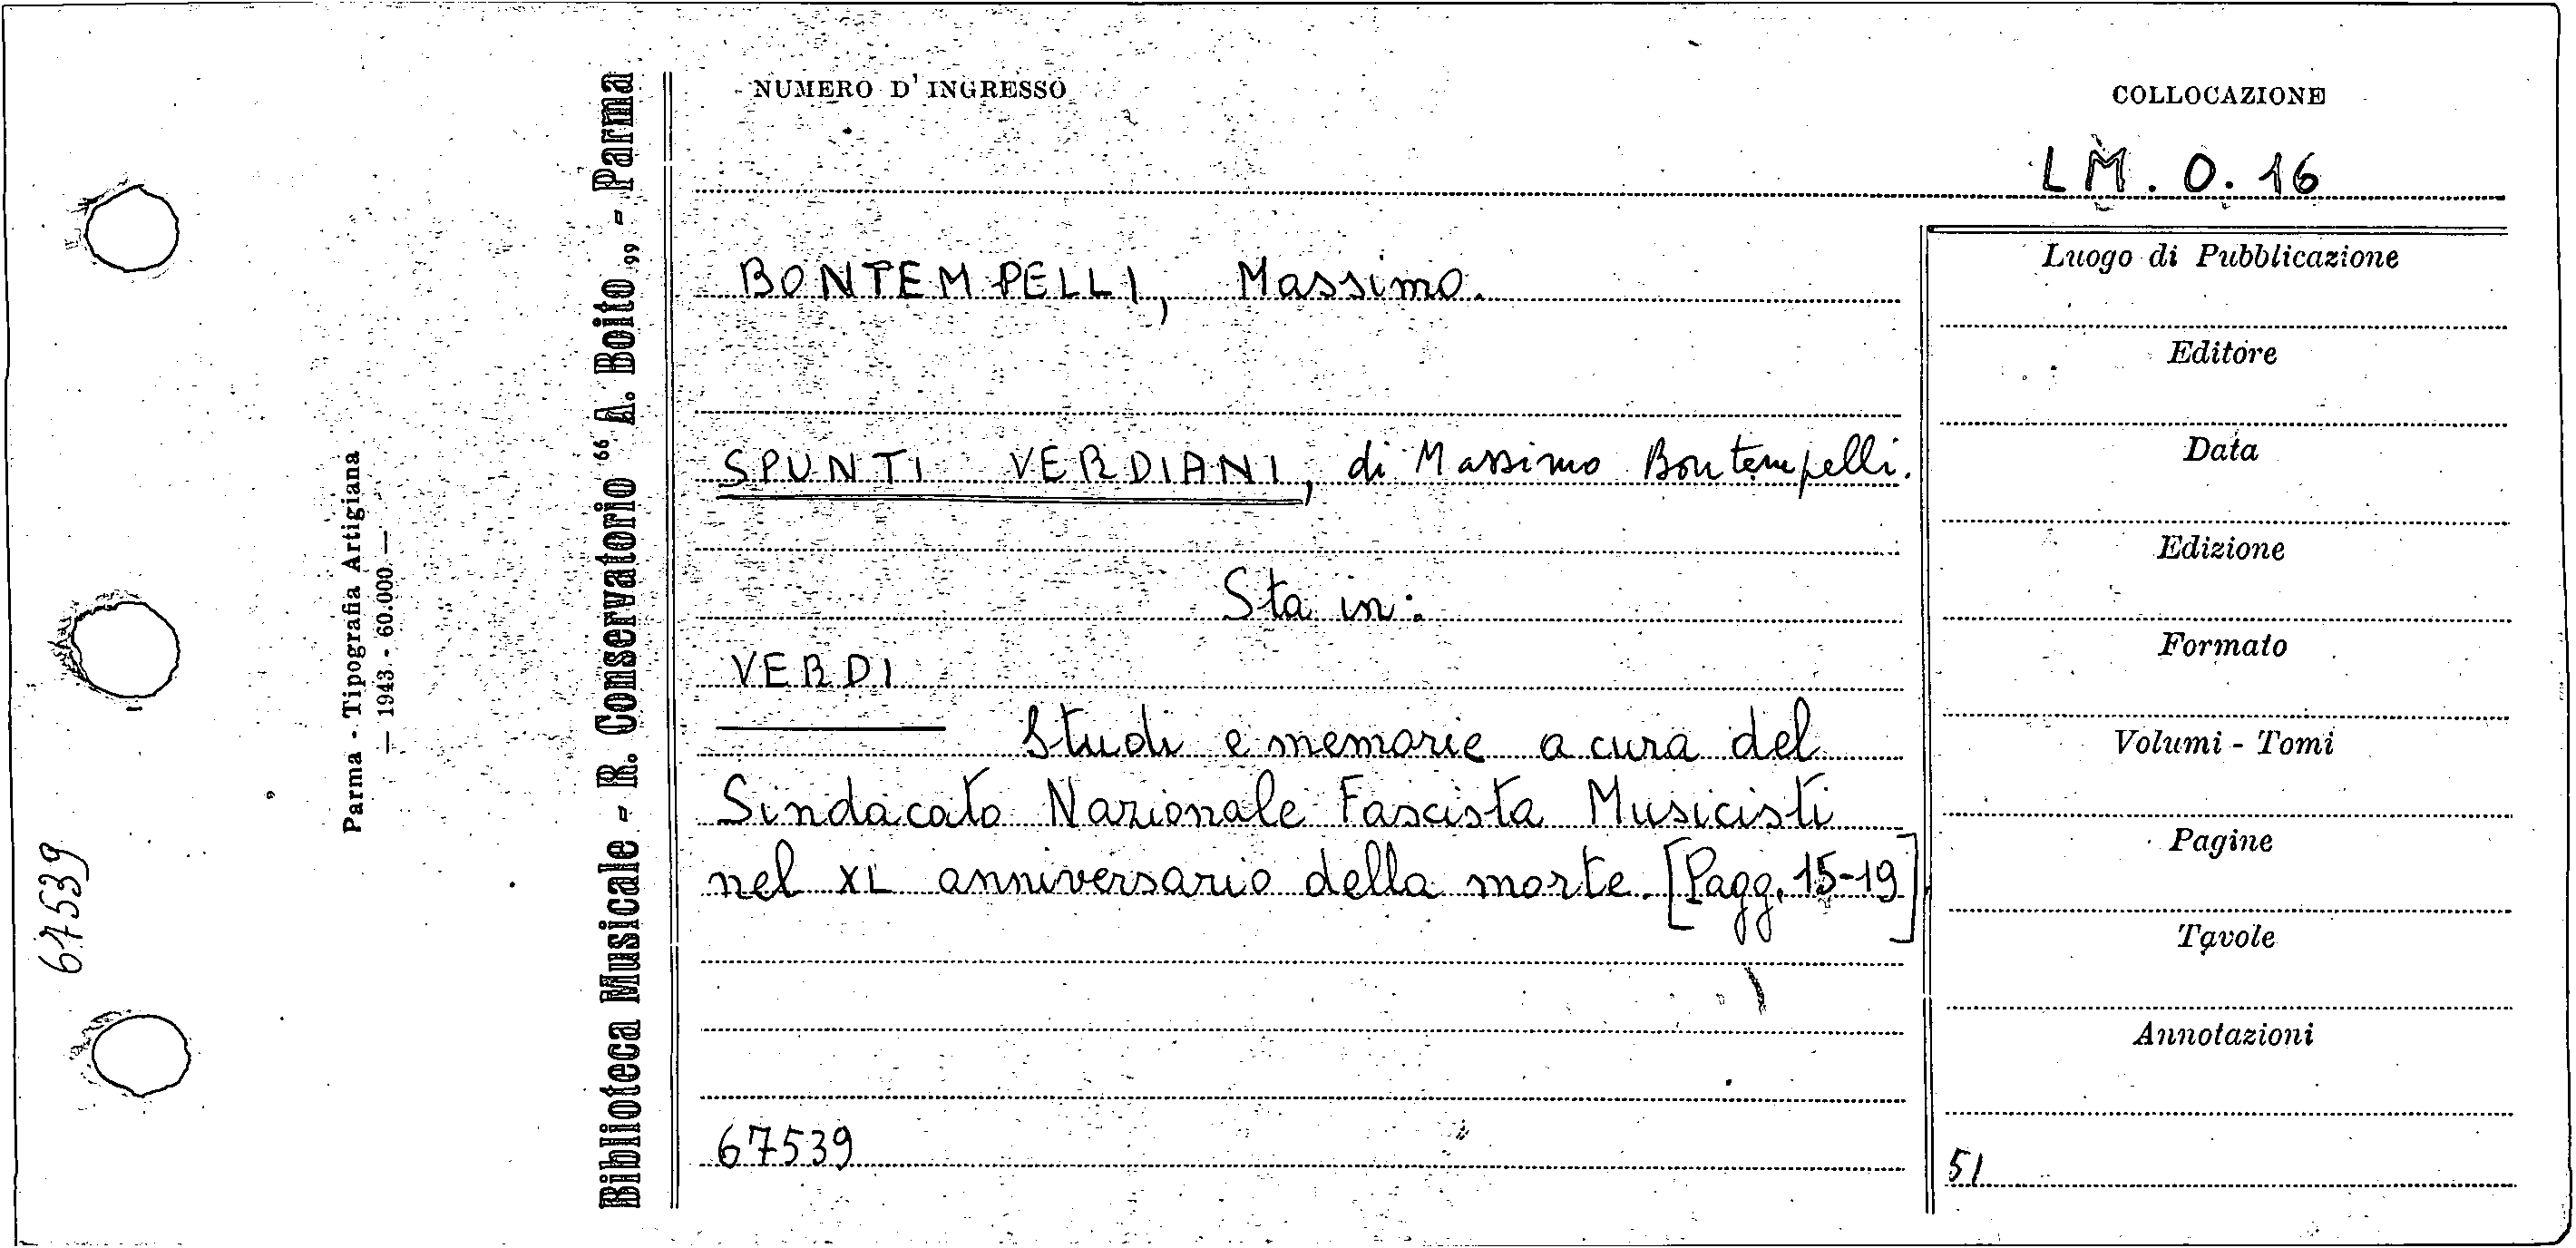 NUMERO D'INGRESSO
COLLOCAZIONE
LM. O. 16
BONTEMPELLI, Massimo.
SPUNTI VERDIANI, di Massimo Bontempelli.
Sta in:
VERDI
Studi e memorie a cura del
Sindacato Nazionale Fascista Musicisti
nel XL anniversario della morte. [Pagg. 15-19]
67539
Luogo di Pubblicazione
Editore
Data
Edizione
Formato
Volumi - Tomi
Pagine
Tavole
Annotazioni
51
Biblioteca Musicale - R. Conservatorio “A. Boito„ - Parma
Parma - Tipografia Artigiana
— 1943 - 60.000 —
67539